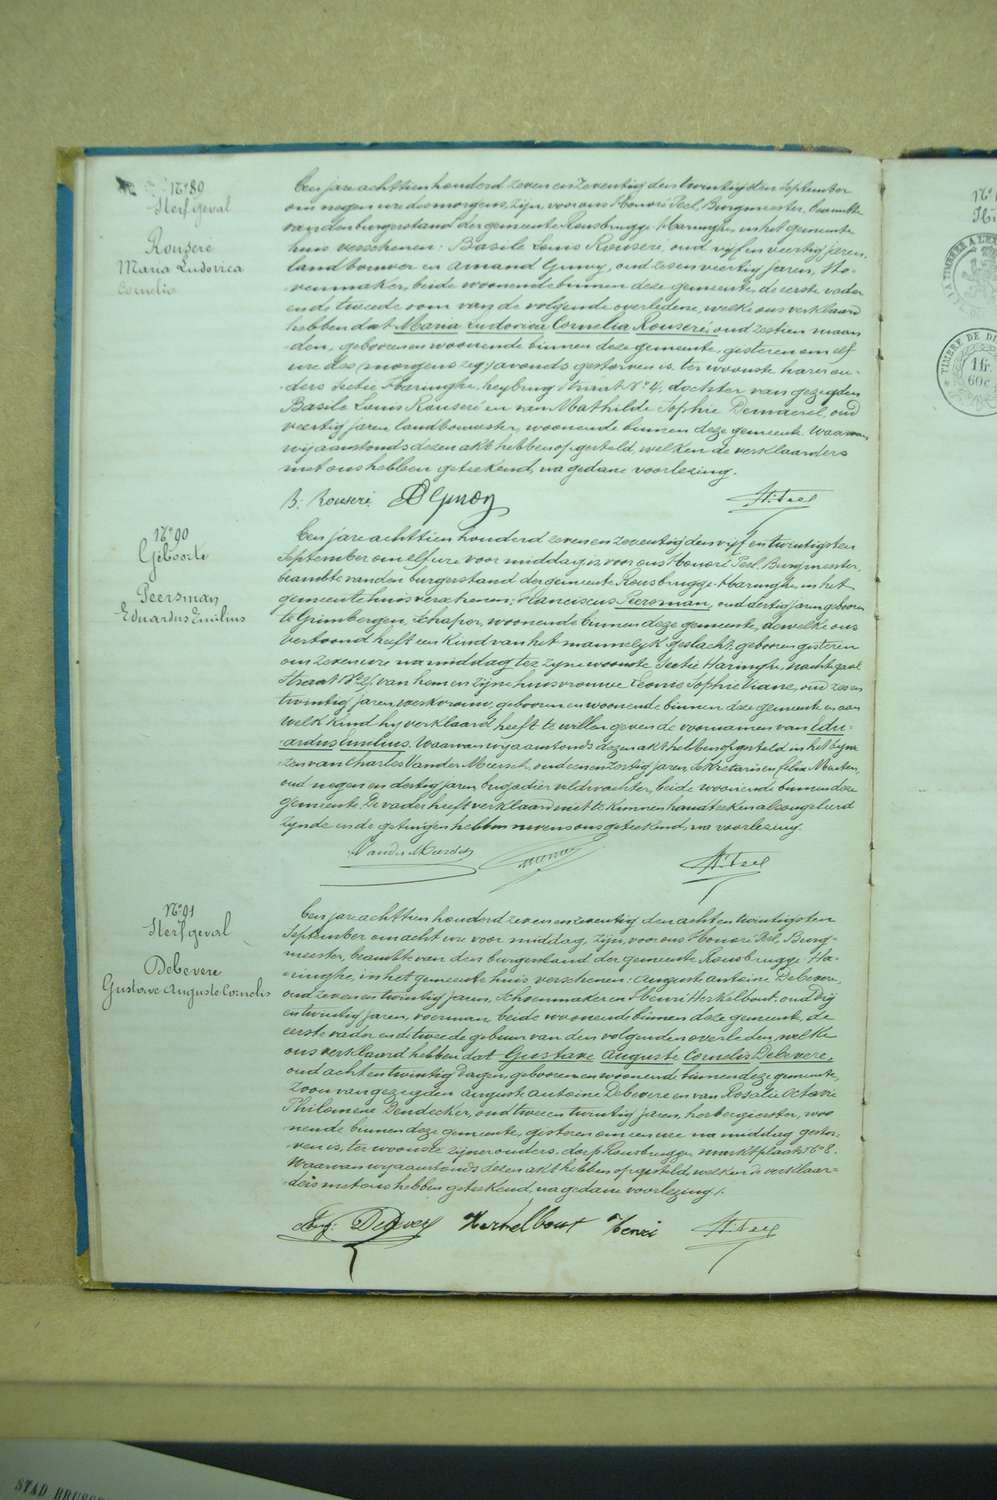 Nº 89
Sterfgeval
Rouseré
Maria Ludovica
Cornelia
Een jare achttien honderd zeven en zeventig den twintigsten September
om negen ure des morgens, zijn voor ons Honoré Peel, Burgmeester, beambte
van den burgerstand der gemeente Rousbrugge-Haringhe, in het gemeente
huis verschenen: Basile Louis Rouseré oud vijf en veertig jaren,
landbouwer en Amand Gmoy, oud zes en veertig jaren, Ho-
venmaker, beide woonende binnen deze gemeente, de eerste vader
en de tweede oom van de volgende overledene, welke ons verklaard
hebben dat Maria Ludovica Cornelia Rouseré, oud zestien maan
den, geboren en woonende binnen deze gemeente, gisteren om elf
ure des (morgens zeg) avonds gestorven is, ter woonste harer ou-
ders Sectie Haringhe, heybrug straat Nº 4, dochter van gezegden
Basile Louis Rouseré en van Mathilde Sophie Demaerel, oud
veertig jaren landbouwster, woonende binnen deze gemeente. Waarvan
wij aanstonds dezen akt hebben opgesteld, welken de verklaarders
met ons hebben geteekend, na gedane voorlezing.
B. Rouseré H. Peel
Nº 90
Geboorte
Peersman
Eduardus Emilius
Een jare achttien honderd zeven en zeventig den vijf en twintigsten
September om elf ure voor middag, is voor ons Honoré Peel, Burgmeester,
beambte van den burgerstand der gemeente Rousbrugge-Haringhe in het
gemeente huis verschenen: Franciscus Peersman, oud dertig jaren geboren
te Grimbergen, schaper, woonende binnen deze gemeente, dewelke ons
vertoond heeft een kind van het mannelijk geslacht, geboren gisteren
om zeven ure na middag te zijne woonste Sectie Haringhe, nachtegaal
Straat Nº 25, van hem en zijne huisvrouwe Leonie Sophie Viane, oud zes en
twintig jaren, werkvrouw, geboren en woonende binnen deze gemeente en aan
welk kind hij verklaard heeft te willen geven de voornamen van Edu-
ardus Emilius. Waarvan wij aanstonds dezen akt hebben opgesteld in het bijne
zen van Charles Vander Meersch, oud een en zestig jaren, Sekretaris en Felix Merten,
oud negen en dertig jaren, brigadier veldwachter, beide woonende binnen deze
gemeente. De vader heeft verklaard niet te kunnen handteeken als ongeleerd
zijnde en de getuigen hebben nevens ons geteekend, na voorlezing.
H. Peel
Nº 91
Sterfgeval
Debevere
Gustave Auguste Cornelis
Een jare achttien honderd zeven en zeventig den acht en twintigsten
September om acht ure voor middag, zijn voor ons Honoré Peel, Burg-
meester, beambte van den burgerstand der gemeente Rousbrugge-Ha-
ringhe, in het gemeente huis verschenen: Auguste Antoine Debevere,
oud zeven en twintig jaren, schoenmaker en Henri Herkelbout, oud drij
en twintig jaren, voerman, beide woonende binnen deze gemeente, de
eerste vader en de tweede gebuur van den volgenden overleden, welke
ons verklaard hebben dat Gustave Auguste Cornelis Debevere,
oud acht en twintig dagen, geboren en woonende binnen deze gemeente,
zoon van gezegden Auguste Antoine Debevere en van Rosalie Octavie
Philomene Dendecker, oud twee en twintig jaren, herbergierster, woo
nende binnen deze gemeente, gisteren om een ure na middag gestor-
ven is, ter woonste zijner ouders, dorp Rousbrugge, marktplaats Nº 8.
Waarvan wij aanstonds dezen akt hebben opgesteld, welken de verklaar-
ders met ons hebben geteekend, na gedane voorlezing.
Herkelbout Henri H. Peel
TIMBRE DE DI
1 fr.
60c
STAD BRUSS